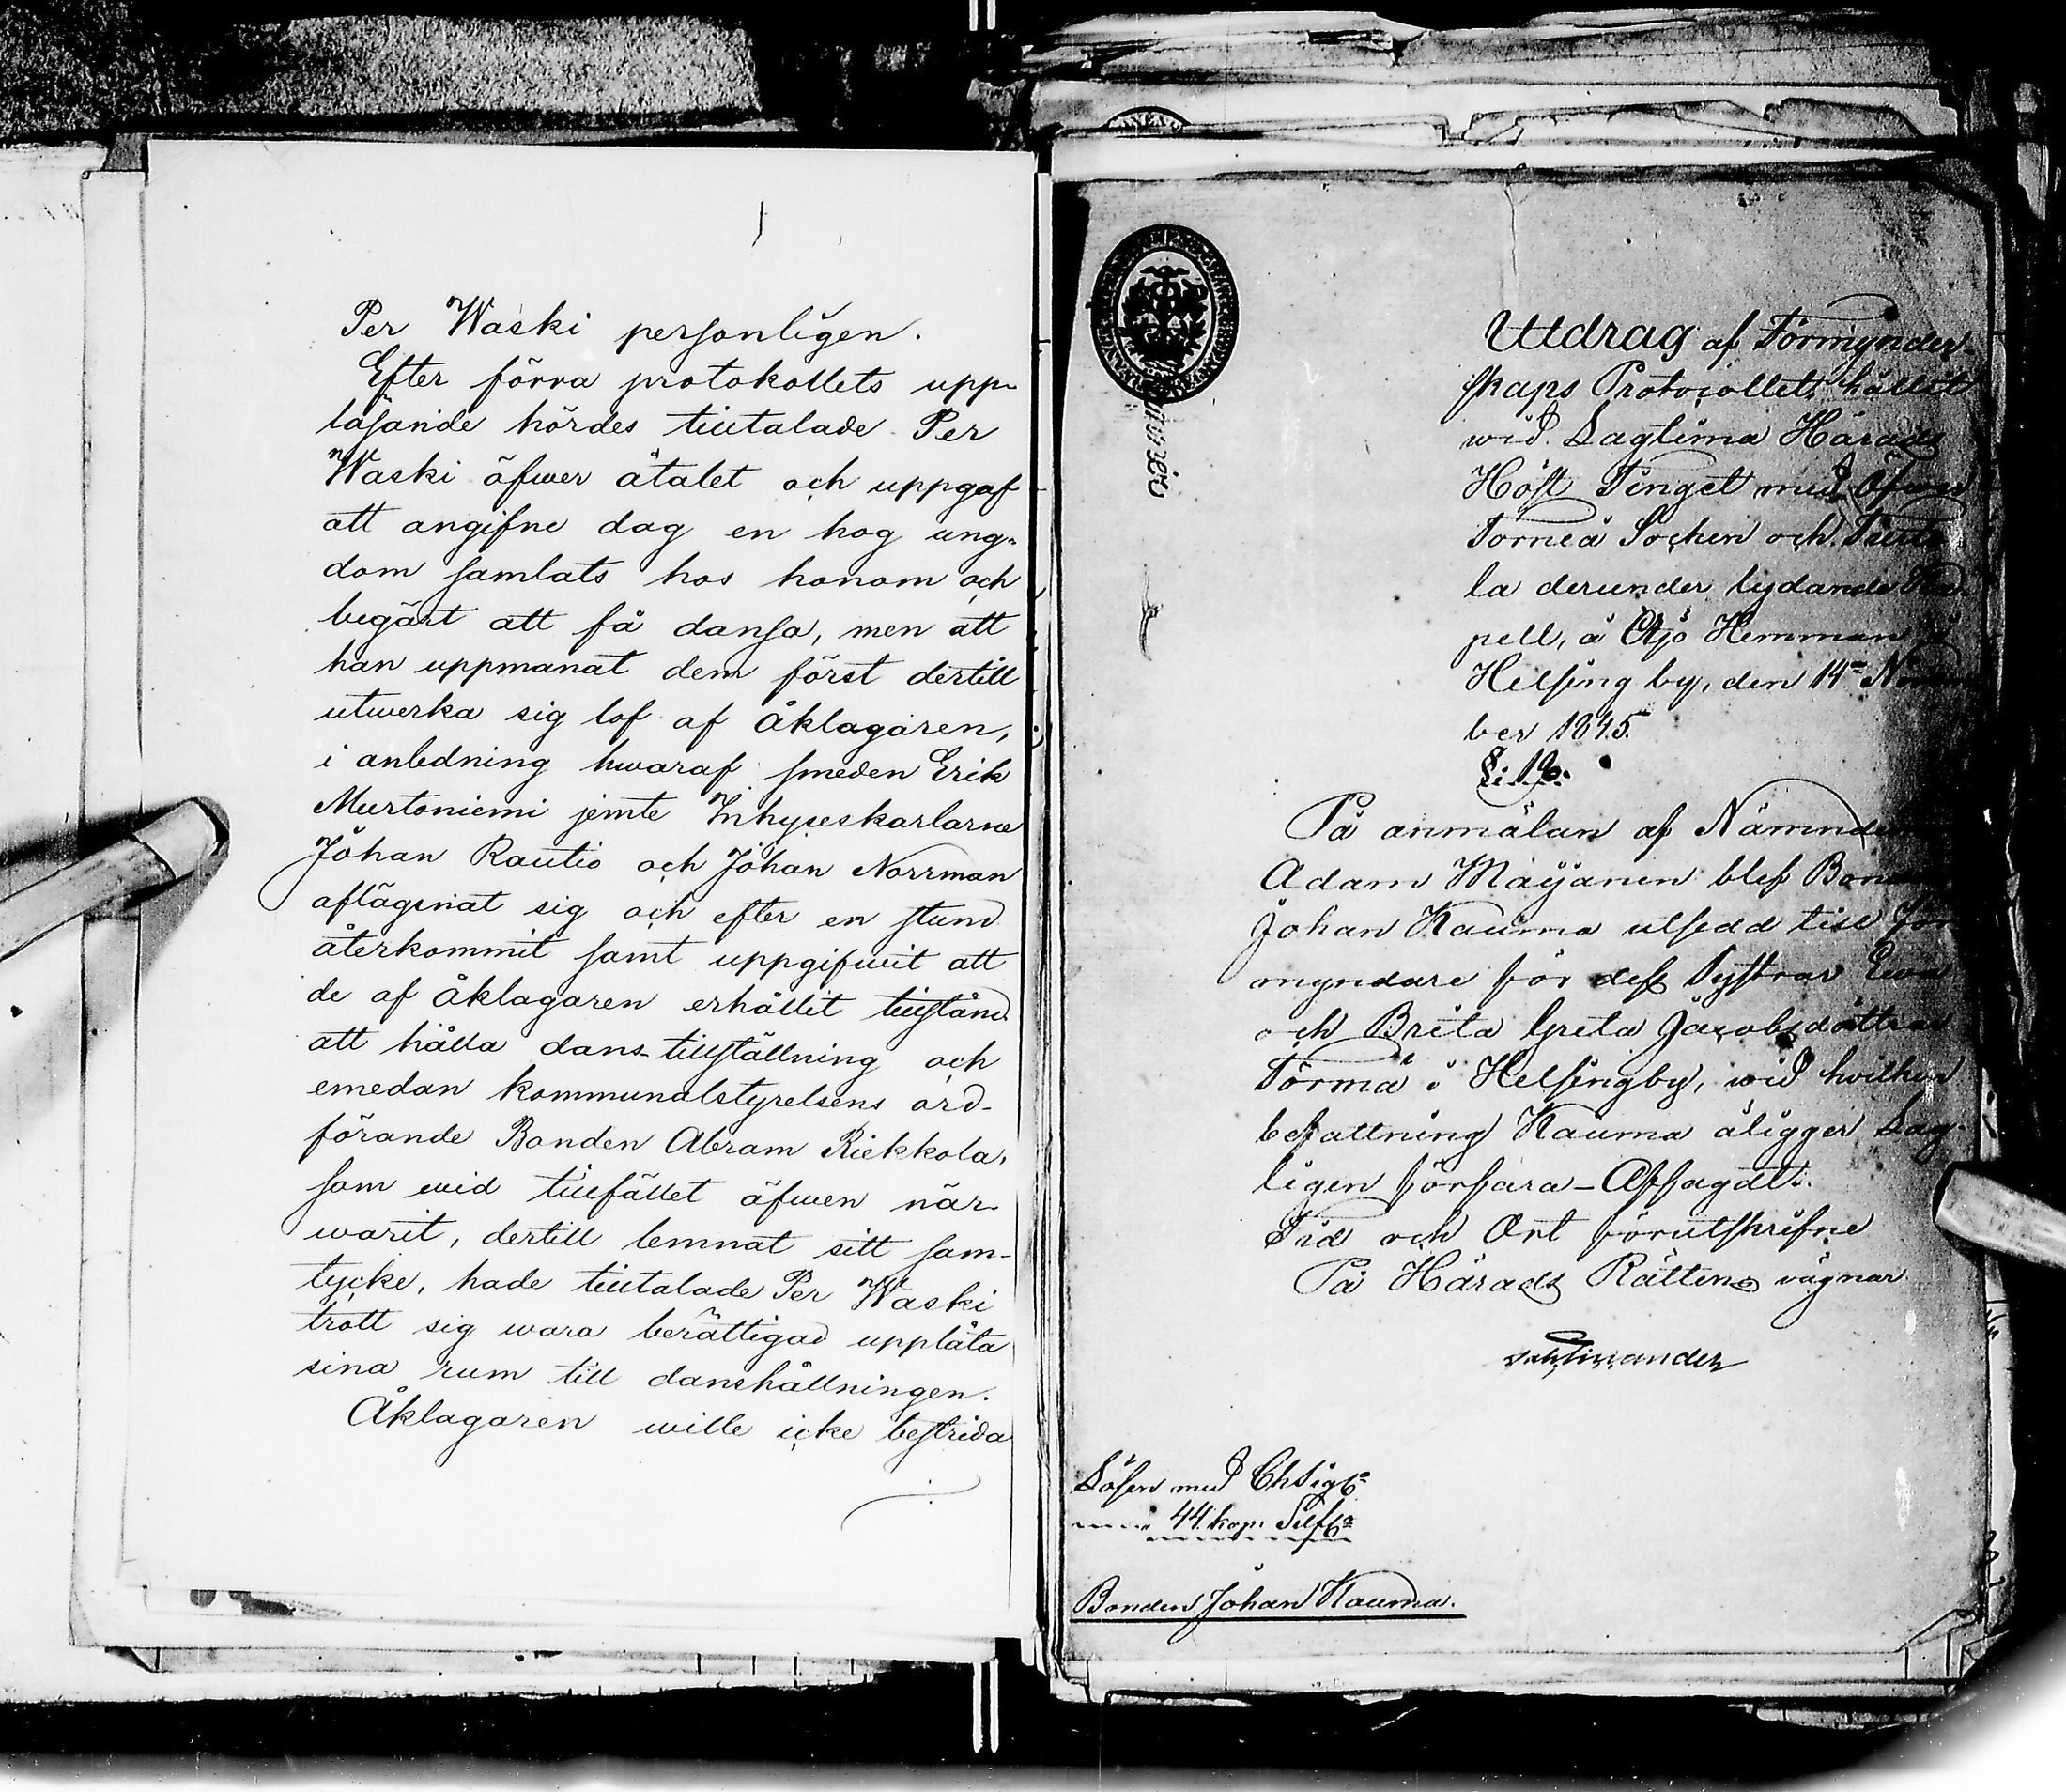 Per Waski personligen.
Efter förra protokollets upp-
läsande hördes tilltalade Per
Waski öfwer åtalet och uppgaf
att angifne dag en hog ung-
dom samlats hos honom och
begärt att få dansa, men att
han uppmanat dem först dertill
utwerka sig lof af åklagaren,
i anledning hwaraf smeden Erik
Murtoniemi jemte Inhyseskarlarne
Johan Rautio och Johan Norrman
aflägsnat sig och efter en stund
återkommit samt uppgifwit att
de af åklagaren erhållit tillstånd
att hålla dans-tillställning och
emedan kommunalstyrelsens ord-
förande Bonden Abram Riekkola,
som wid tillfället äfwen när-
warit, dertill lemnat sitt sam-
tycke, hade tilltalade Per Waski
trott sig wara berättigad upplåta
sina rum till danshållningen.
Åklagaren wille icke bestrida
Utdrag af Förmynder-
skaps Protocollet, hållit
wid Lagtima Härads
Höst Tinget med Öfwer
Torneå Sochen och Turto
la derunder lydande Ka-
pell, å Öjo Hemman i
Helsing by, den 14de Novem
ber 1845.
§: 16.
På anmälan af Nämndem
Adam Mäyänen blef Bonden
Johan Kauma utsedd till För
myndare för dess Systrar Ewa
och Brita Greta Jacobsdöttrar
Törmä i Helsingby, wid hvilken
befattning Kauma åligger Lag-
ligen förfara – Afsagdt.
Tid och Ort förutskrifne
På Härads Rättens vägnar
Lösen med Ch Sigl:
44. kop. Silfr
Bonden Johan Kauma.